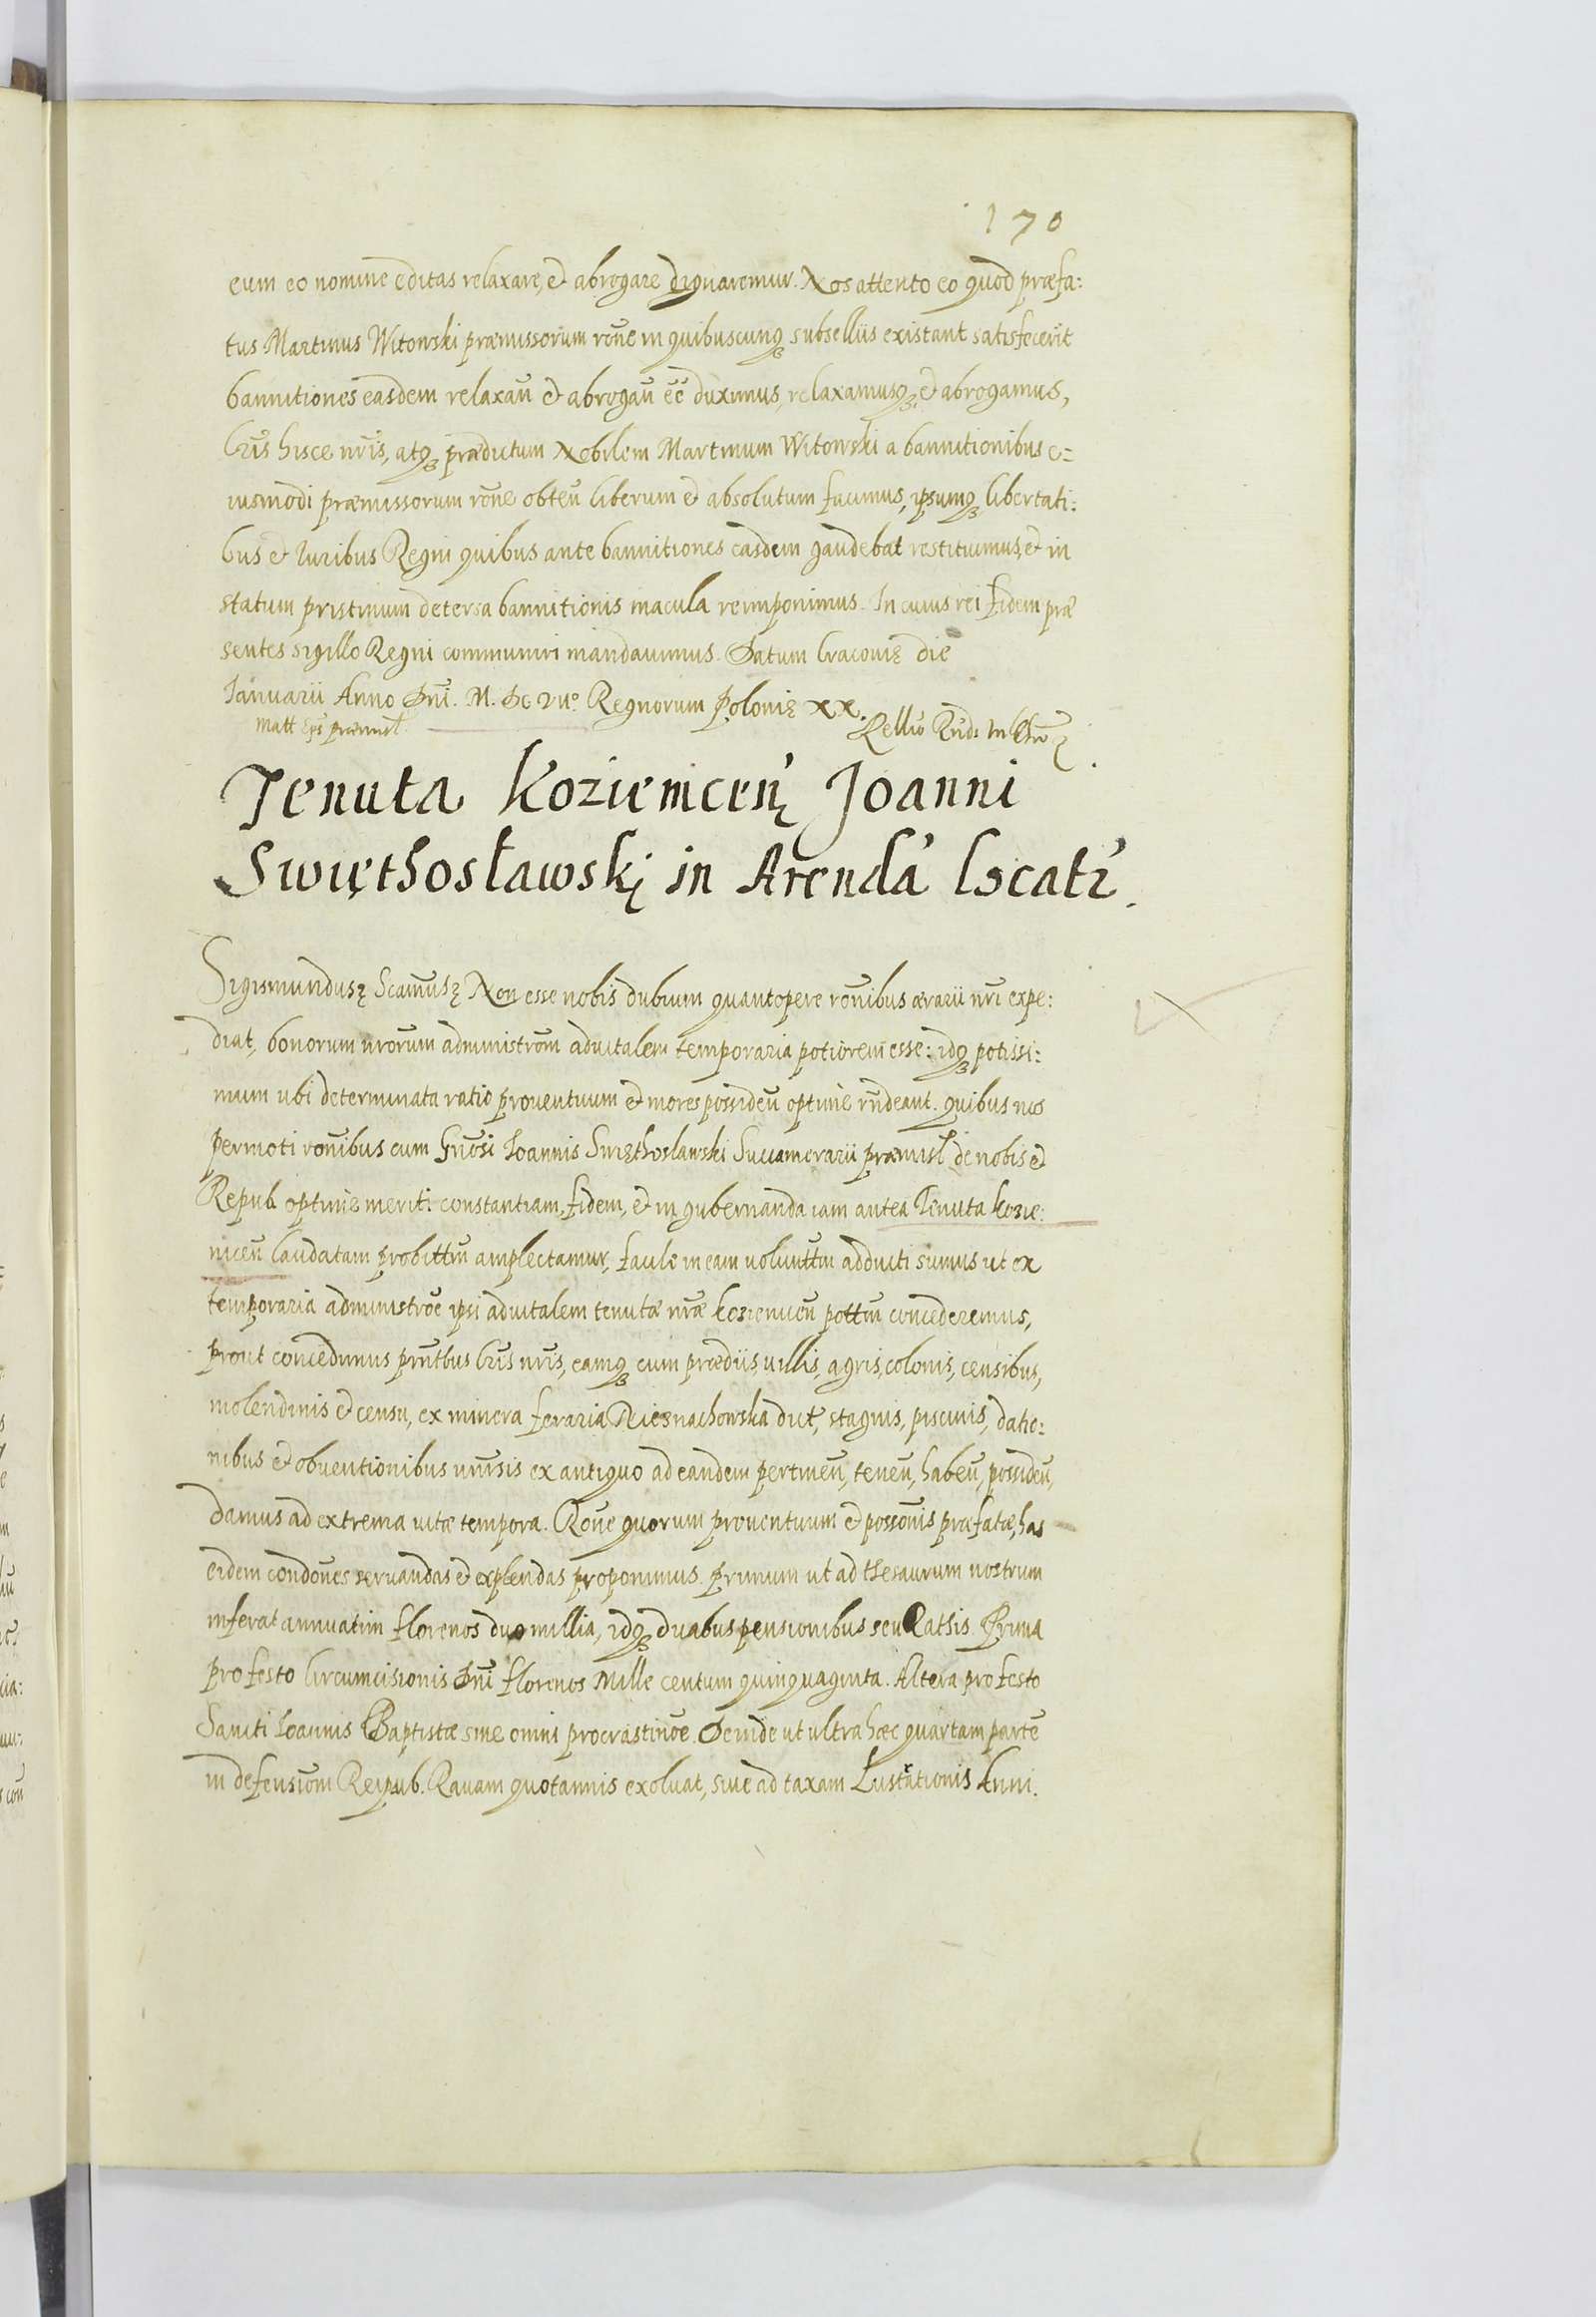 170
eum eo nomine editas relaxare, et abrogare dignaremur. Nos attento eo quod præfa:
tus Martinus Witowski præmissorum rõne in quibuscunq₃ subselliis existant satisfecerit
bannitiones easdem relaxañ et abrogañ ẽẽ duximus, relaxamusq₃ et abrogamus,
lr̃is hisce nr̃is, atq₃ prædictum Nobilem Martinum Witowski a bannitionibus e=
iusmodi præmissorum rõne obteñ liberum et absolutum facimus, ipsumq₃ libertati:
bus et Iuribus Regni quibus ante bannitiones easdem gaudebat restituimus, et in
statum pristinum detersa bannitionis macula reimponimus. In cuius rei fidem præ
sentes sigillo Regni communiri mandavimus. Datum Cracovię die
Ianuarii Anno Dñi. M. Dc VIIº Regnorum Polonię XX.
Matt Ep̃s præmisl̃. Rellio Rñdi
Tenuta Kozieniceń Joanni
Swięthosławskį in Arendã locatr̃.
Sigismundusę Scam̃usę Non esse nobis dubium quantopere rõnibus ærarii nr̃i expe:
diat, bonorum nrõrum administrõm aduitalem temporaria potiorem esse: idq₃ potissi:
mum ubi determinata ratio proventuum et mores possideñ optime rñdeant. quibus nos
permoti rõnibus cum Gñosi Ioannis Swięthoslawski Succamerarii præmisl̃ de nobis et
Repub. optime meriti constantiam, fidem, et in gubernanda iam antea Tenuta Kozie:
niceñ laudatam probittm̃ amplectamur, facile in eam voluñttm adducti sumus ut ex
temporaria administrõe ipsi aduitalem tenutæ nr̃æ Kozieniceñ pottm̃ concederemus,
prout concedimus pñtbus lr̃is nr̃is, eamq₃ cum prædiis, villis, agris, colonis, censibus,
molendinis et censu, ex minera feraria Nieznachowska dict̃, stagnis, piscinis, datio:
nibus et obventionibus univr̃sis ex antiquo ad eandem pertineñ, teneñ, habeñ, possideñ,
damus ad extrema vitæ tempora. Rõne quorum proventuum et possõnis præfatæ, has
eidem condões servandas et explendas proponimus. Primum ut ad thesaurum nostrum
inferat annuatim florenos duo millia, idq₃ duabus pensionibus seu Rathis Prima
pro festo Circumcisionis Dñi florenos Mille centum quinquaginta. Altera pro festo
Sancti Ioannis Baptistæ sine omni procrastinõe. Deinde ut ultra hæc quartam partẽ
in defensiõm Reipub. Ravam quotannis exolvat, sive ad taxam Lustrationis Anni.